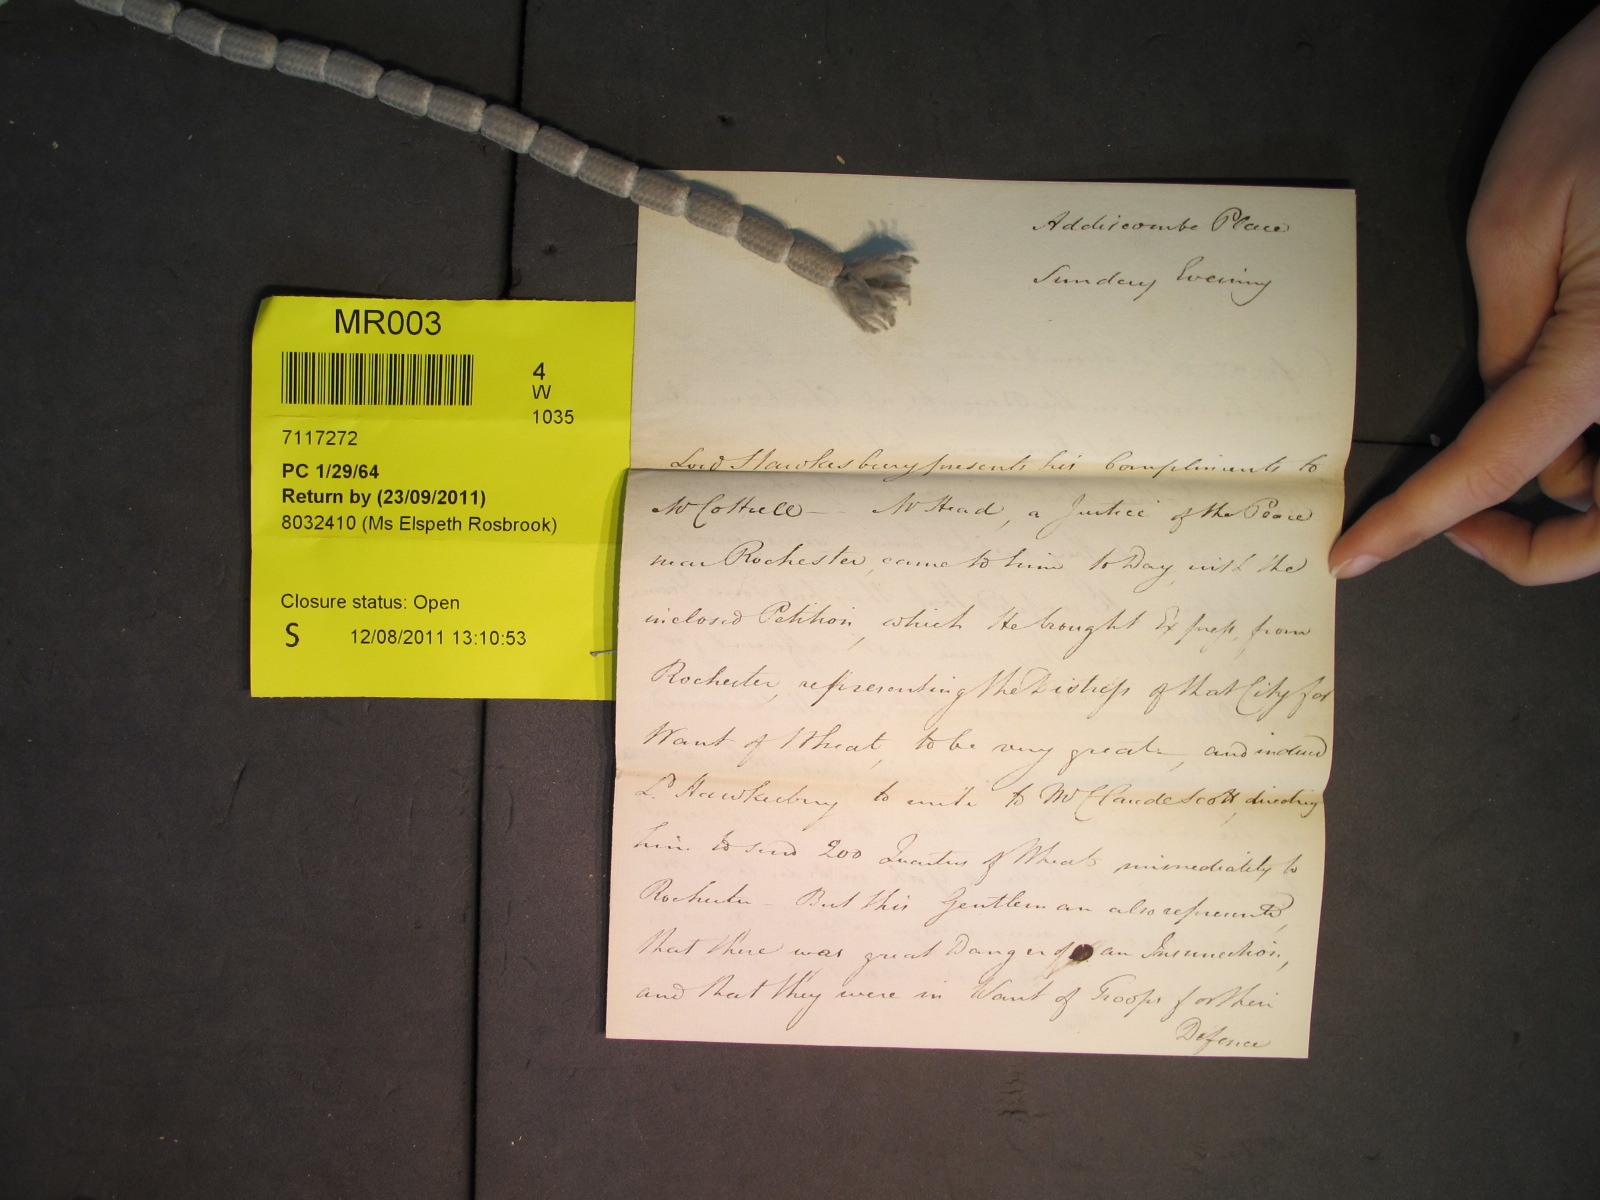 MR003
4
W
1035
7117272
PC 1/29/64
Return by (23/09/2011)
8032410 (Ms Elspeth Rosbrook)
Closure status: Open
S 12/08/2011 13:10:53
Addiscombe Place
Sunday Evening
Lord Hawkesbury presents his Compliments to
Mr Cottrell — Mr Head, a Justice of the Peace
near Rochester, came to him to Day, with the
inclosed Petition, which He brought Express, from
Rochester, representing the Distress of that City for
Want of Wheat, to be very great, and induced
Ld. Hawkesbury to write to Mr Claude Scott, directing
him to send 200 Quarters of Wheat immediately to
Rochester — But this Gentleman also represents,
that there was great Danger of an Insurrection,
and that they were in Want of Troops for their
Defence